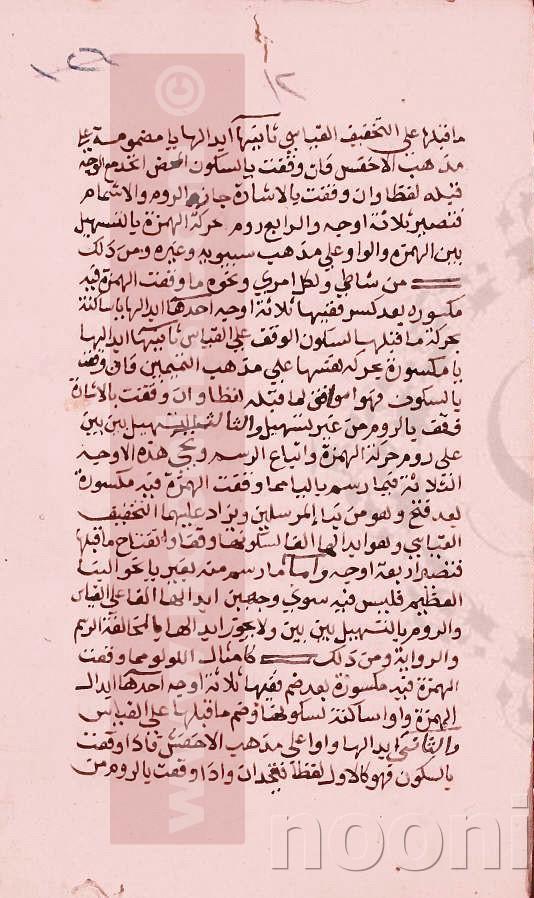 ١٢
ما قبلها على التخفيف القياسي ثانيها ابدالها يا مضمومة على
مذهب الاخفش فان وقفت بالسكون المحض اتحد مع الوجه
قبله لفظا وان وقفت بالاشارة جاز الروم والاشمام
فتصير ثلاثة اوجه والرابع روم حركة الهمزة بالتسهيل
بين الهمزه والواو على مذهب سيبويه وغيره ومن ذلك
من شاطي ولكل امري ونحوه مما وقعت الهمزة فيه
مكسورة بعد كسر ففيها ثلاثة اوجه احدها ابدالها يا ساكنة
بحركة ما قبلها لسكون الوقف على القياس ثانيها ابدالها
يا مكسورة بحركة نفسها على مذهب التميمين فان وقفت
بالسكون فهو موافق لما قبله لفظا وان وقفت بالاشارة
فقف بالروم من غير تسهيل والثالث التسهيل بين بين
على روم حركة الهمزة واتباع الرسم ويجي هذه الاوجه
الثلاثة فيما رسم باليا مما وقعت الهمزة فيه مكسورة
بعد فتح وهو من نبإ المرسلين ويزاد عليهما التخفيف
القياسي وهو ابدالها الفا لسكونها وقفا وانفتاح ما قبلها
فتصير اربعة اوجه واما ما رسم منه بغير يا نحو النبا
العظيم فليس فيه سوي وجهين ابدالها الفا على القياس
والروم بالتسهيل بين بين ولا يجوز ابدالها يا لمخالفة الرسم
والرواية ومن ذلك كامثال اللولو مما وقعت
الهمزة فيه مكسورة بعد ضم ففيها ثلاثة اوجه احدها ابدال
الهمزة واوا ساكنة لسكونها وضم ما قبلها على القياس
والثاني ابدالها واوا على مذهب الاخفش فاذا وقفت
بالسكون فهو كالاول لفظا فيتحدان واذا وقفت بالروم من
nooni